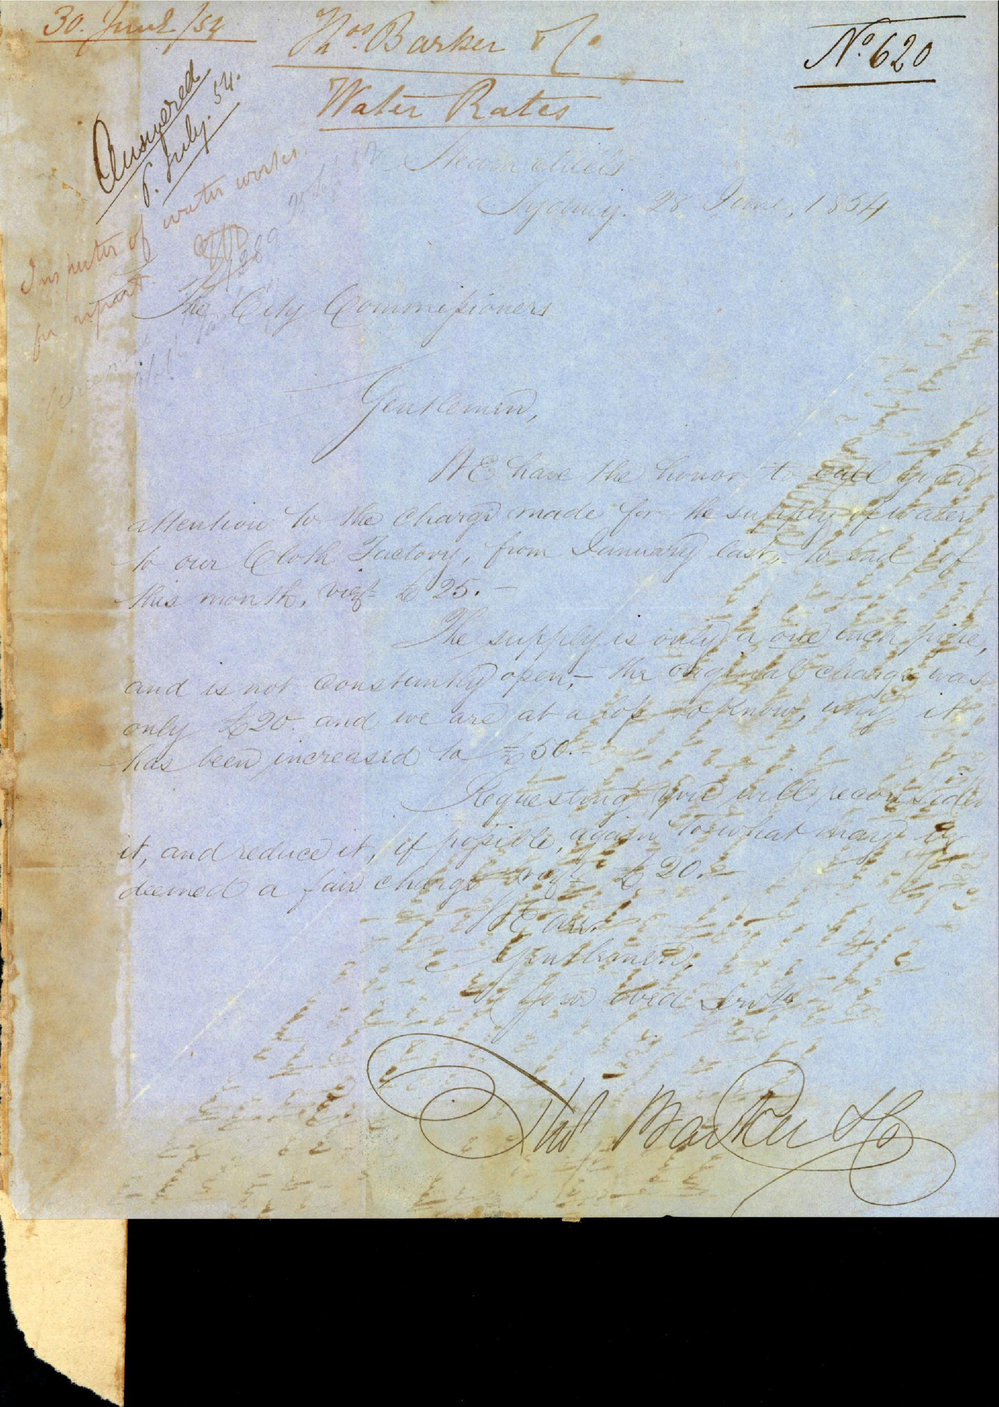 30. June /54
Thos. Barker & Co
No. 620
Water Rates
Answered
6. July. 54.
Inspector of water works
for report
Steam Mills
Sydney. 28 June, 1854
The City Commissioners
Gentlemen,
WE have the honor to call your
attention to the charge made for the supply of water
to our Cloth Factory, from January last, to end of
this month, vizt £25.–
The supply is only a one inch pipe,
and is not constantly open,– the original charge was
only £20. and we are at a loss to know, why it
has been increased to £50.–
Requesting you will reconsider
it, and reduce it, if possible, again to what may be
deemed a fair charge vizt £20.–
WE are.
Gentlemen,
Your obed Servts
Thos Barker & Co